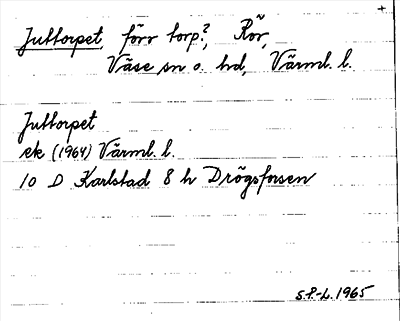 +
Juttorpet, förr torp?, Rör,
Väse sn o. hd, Värml. l.
Juttorpet
ek (1964) Värml. l.
10 D Karlstad 8 h Drögsforsen
S.P-L. 1965